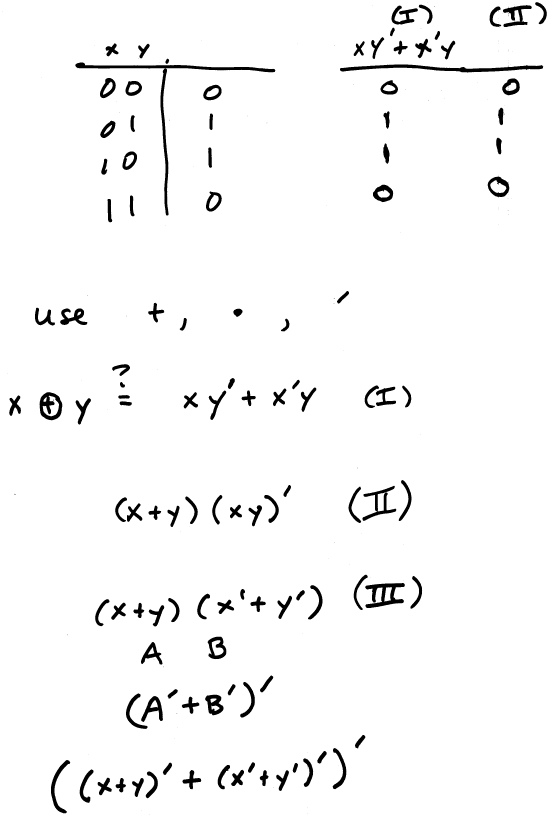 (I) (II)
x y xy' + x'y
0 0 0 0 0
0 1 1 1 1
1 0 1 1 1
1 1 0 0 0
use +, •, ′
x ⊕ y ≟ xy' + x'y (I)
(x+y) (xy)' (II)
(x+y) (x'+y') (III)
A B
(A'+B')'
((x+y)' + (x'+y')')'